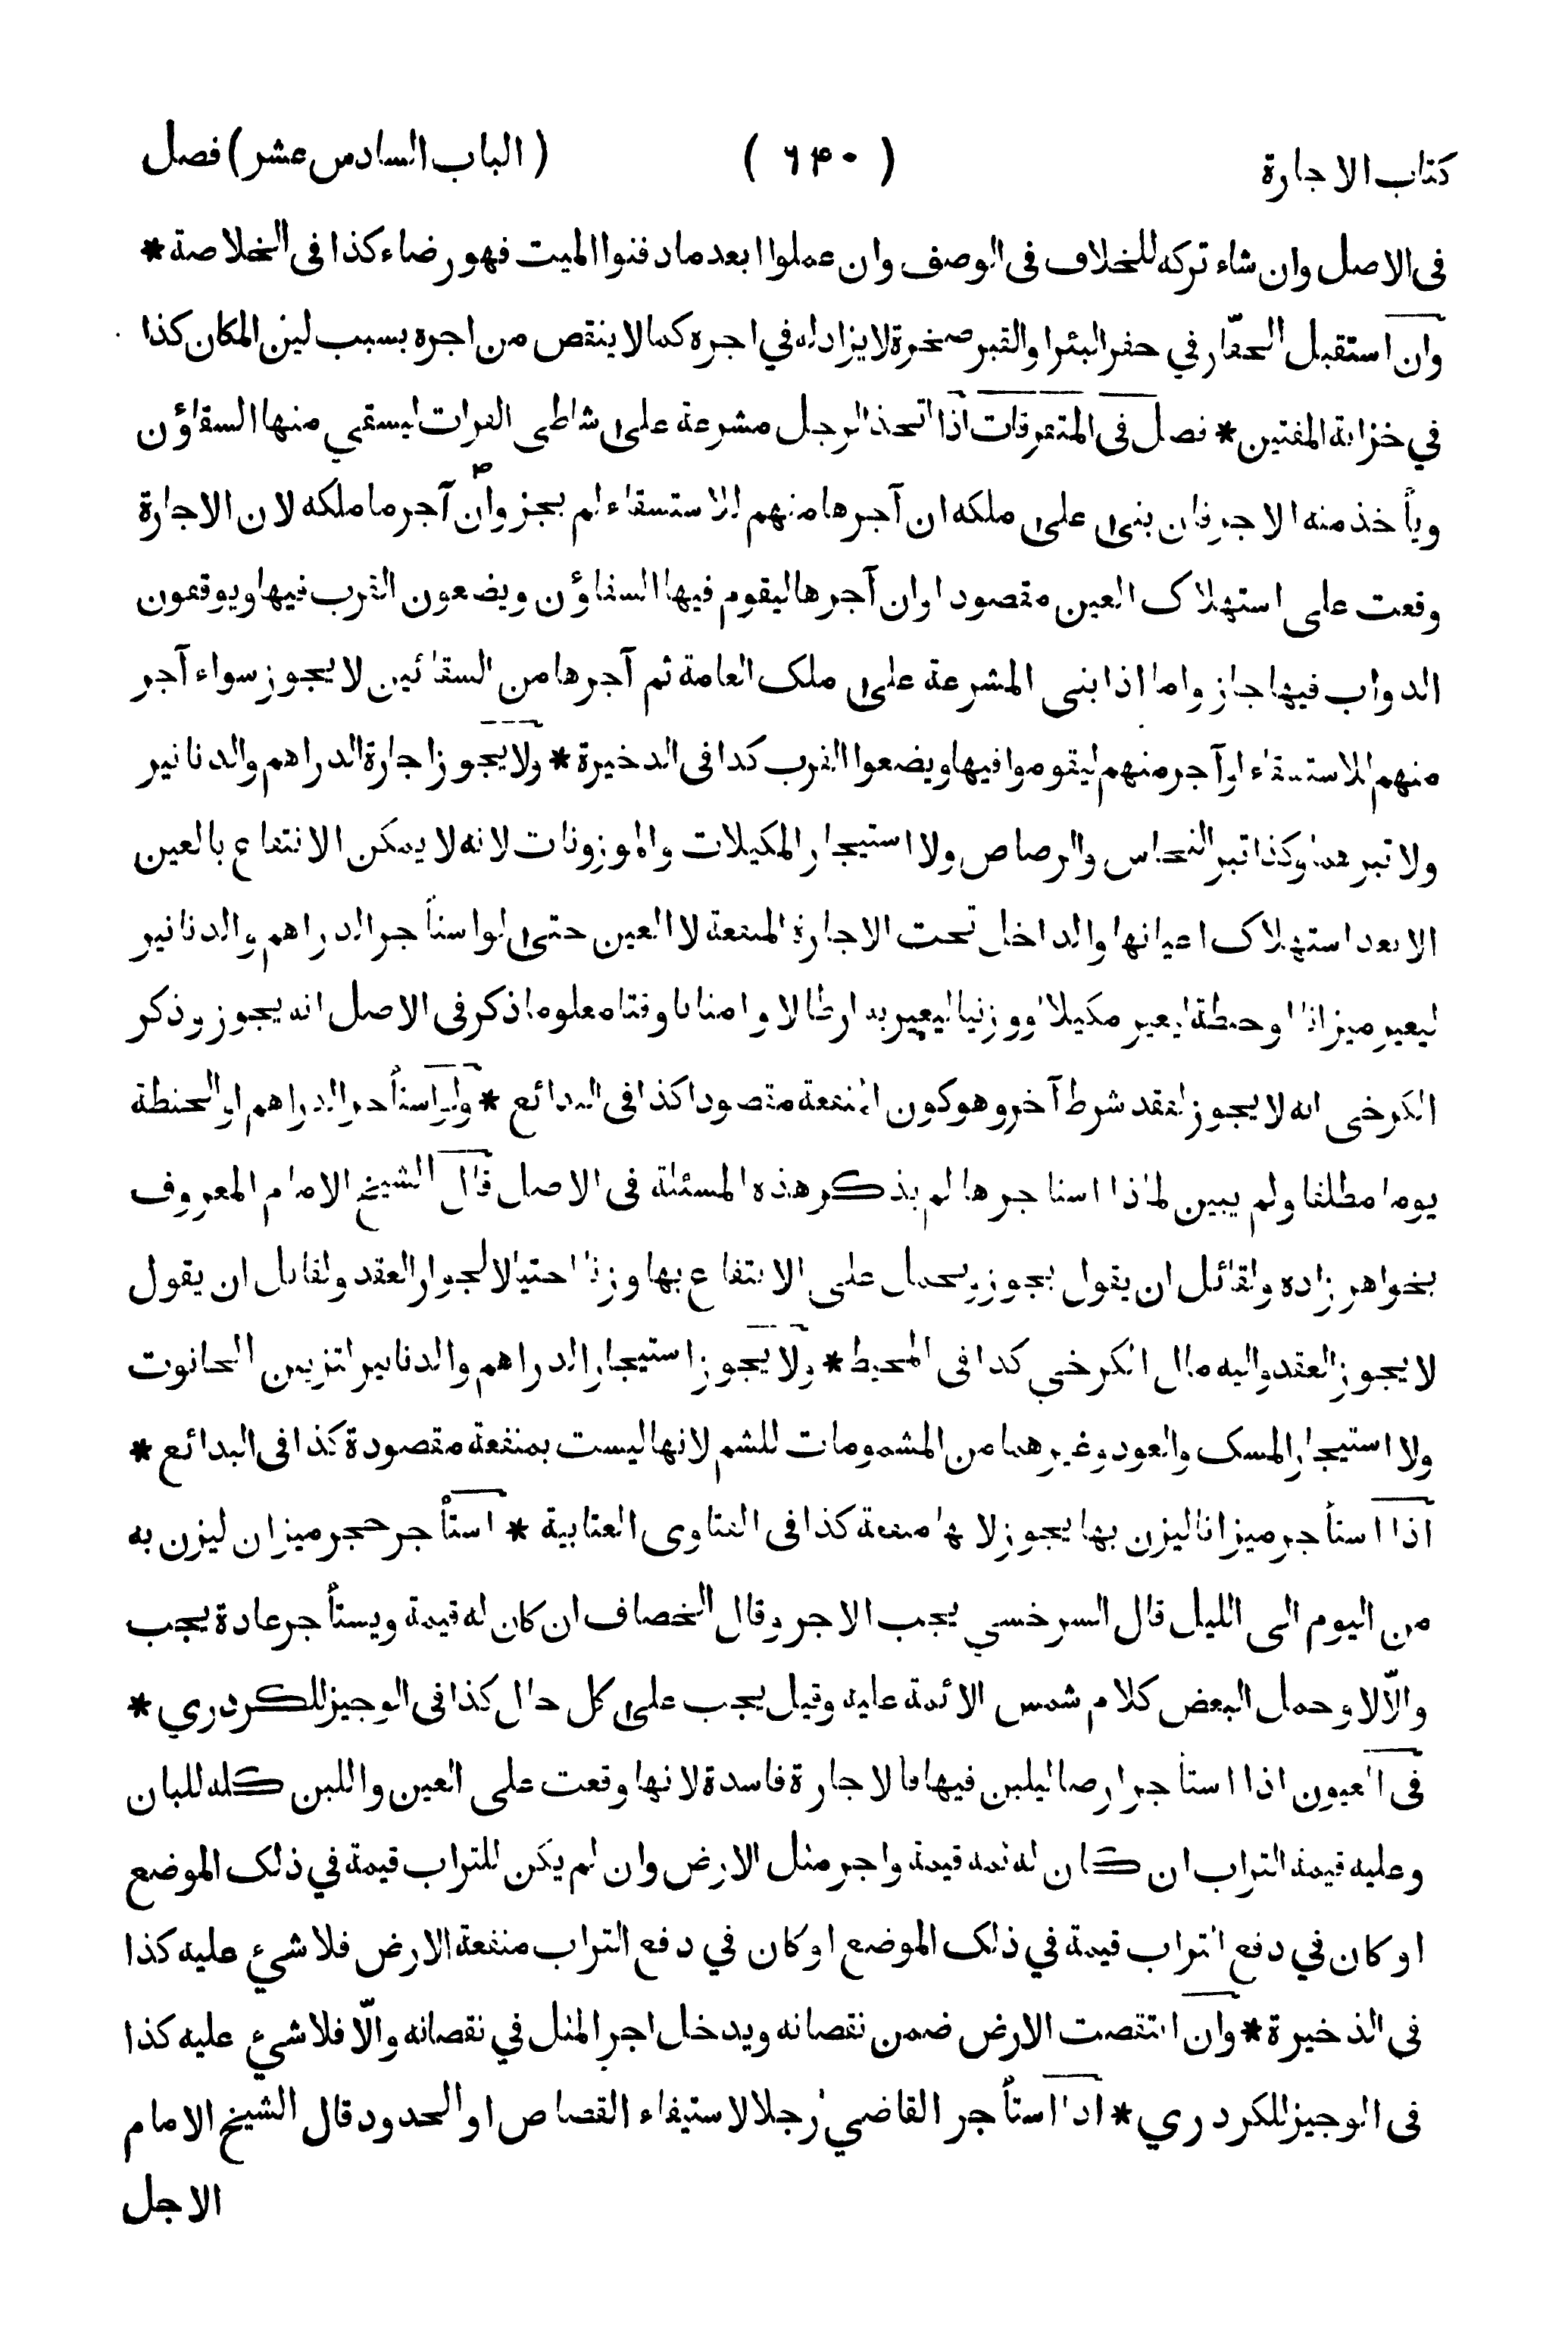 كتاب الاجارة ( ۶۴۰ ) ( الباب السادس عشر ) فصل
فى الاصل وان شاء تركه للخلاف فى الوصف وان عملوا ابعد مادفنوا الميت فهو رضاء كذا فى الخلاصة *
وان استقبل الحفّار في حفر البئر او القبر صخرة لا يزاد له في اجره كما لا ينقص من اجره بسبب لين المكان كذا
في خزانة المفتين * فصل فى المتفرقات اذا اتخذ الرجل مشرعة على شاطى الفرات ليستقي منها السقاؤن
ويأخذ منه الاجر فان بنى على ملكه ان آجرها منهم للاستسقاء لم يجز وان آجر ما ملكه لان الاجارة
وقعت على استهلاك العين مقصودا وان آجرها ليقوم فيها السقاؤن ويضعون القرب فيها ويوقفون
الدواب فيها جاز واما اذا بنى المشرعة على ملك العامة ثم آجرها من السقائين لا يجوز سواء آجر
منهم للاستسقاء او آجر منهم ليقوموا فيها ويضعوا القرب كذا فى الذخيرة * ولا يجوز اجارة الدراهم والدنانير
ولا تبرهما وكذا تبر النحاس والرصاص ولا استيجار المكيلات والموزونات لانه لا يمكن الانتفاع بالعين
الا بعد استهلاك اعيانها والداخل تحت الاجارة المنفعة لا العين حتى لو استأجر الدراهم والدنانير
ليعير ميزانا او حنطة ليعير مكيلا او وزنيا ليعير به ارطالا او امنانا وقتا معلوما ذكر فى الاصل انه يجوز وذكر
الكرخى انه لا يجوز لفقد شرط آخر وهو كون المنفعة مقصودا كذا فى البدائع * ولو استأجر الدراهم او الحنطة
يوما مطلقا ولم يبين لماذا استاجرها لم يذكر هذه المسئلة فى الاصل قال الشيخ الامام المعروف
بخواهر زاده ولقائل ان يقول يجوز ويحمل على الانتفاع بها وزنا احتيالا لجواز العقد ولقائل ان يقول
لا يجوز العقد واليه مال الكرخي كذا فى المحيط * ولا يجوز استيجار الدراهم والدنانير لتزيين الحانوت
ولا استيجار المسك والعود وغيرهما من المشمومات للشم لانها ليست بمنفعة مقصودة كذا فى البدائع *
اذا استأجر ميزانا ليزن بها يجوز لانها منفعة كذا فى الفتاوى العتابية * استأجر حجر ميزان ليزن به
من اليوم الى الليل قال السرخسي يجب الاجر وقال الخصاف ان كان له قيمة ويستأجر عادة يجب
والّا لا وحمل البعض كلام شمس الائمة عليه وقيل يجب على كل حال كذا فى الوجيز للكردري *
فى العيون اذا استأجر ارضا ليلبن فيها فالاجارة فاسدة لانها وقعت على العين واللبن كله للبان
وعليه قيمة التراب ان كان له ثمه قيمة واجر مثل الارض وان لم يكن للتراب قيمة في ذلك الموضع
او كان في دفع التراب قيمة في ذلك الموضع او كان في دفع التراب منفعة الارض فلا شيء عليه كذا
فى الذخيرة * وان انتقصت الارض ضمن نقصانه ويدخل اجر المثل في نقصانه والّا فلا شيء عليه كذا
فى الوجيز للكردري * اذا استأجر القاضي رجلا لاستيفاء القصاص او الحدود قال الشيخ الامام
الاجل